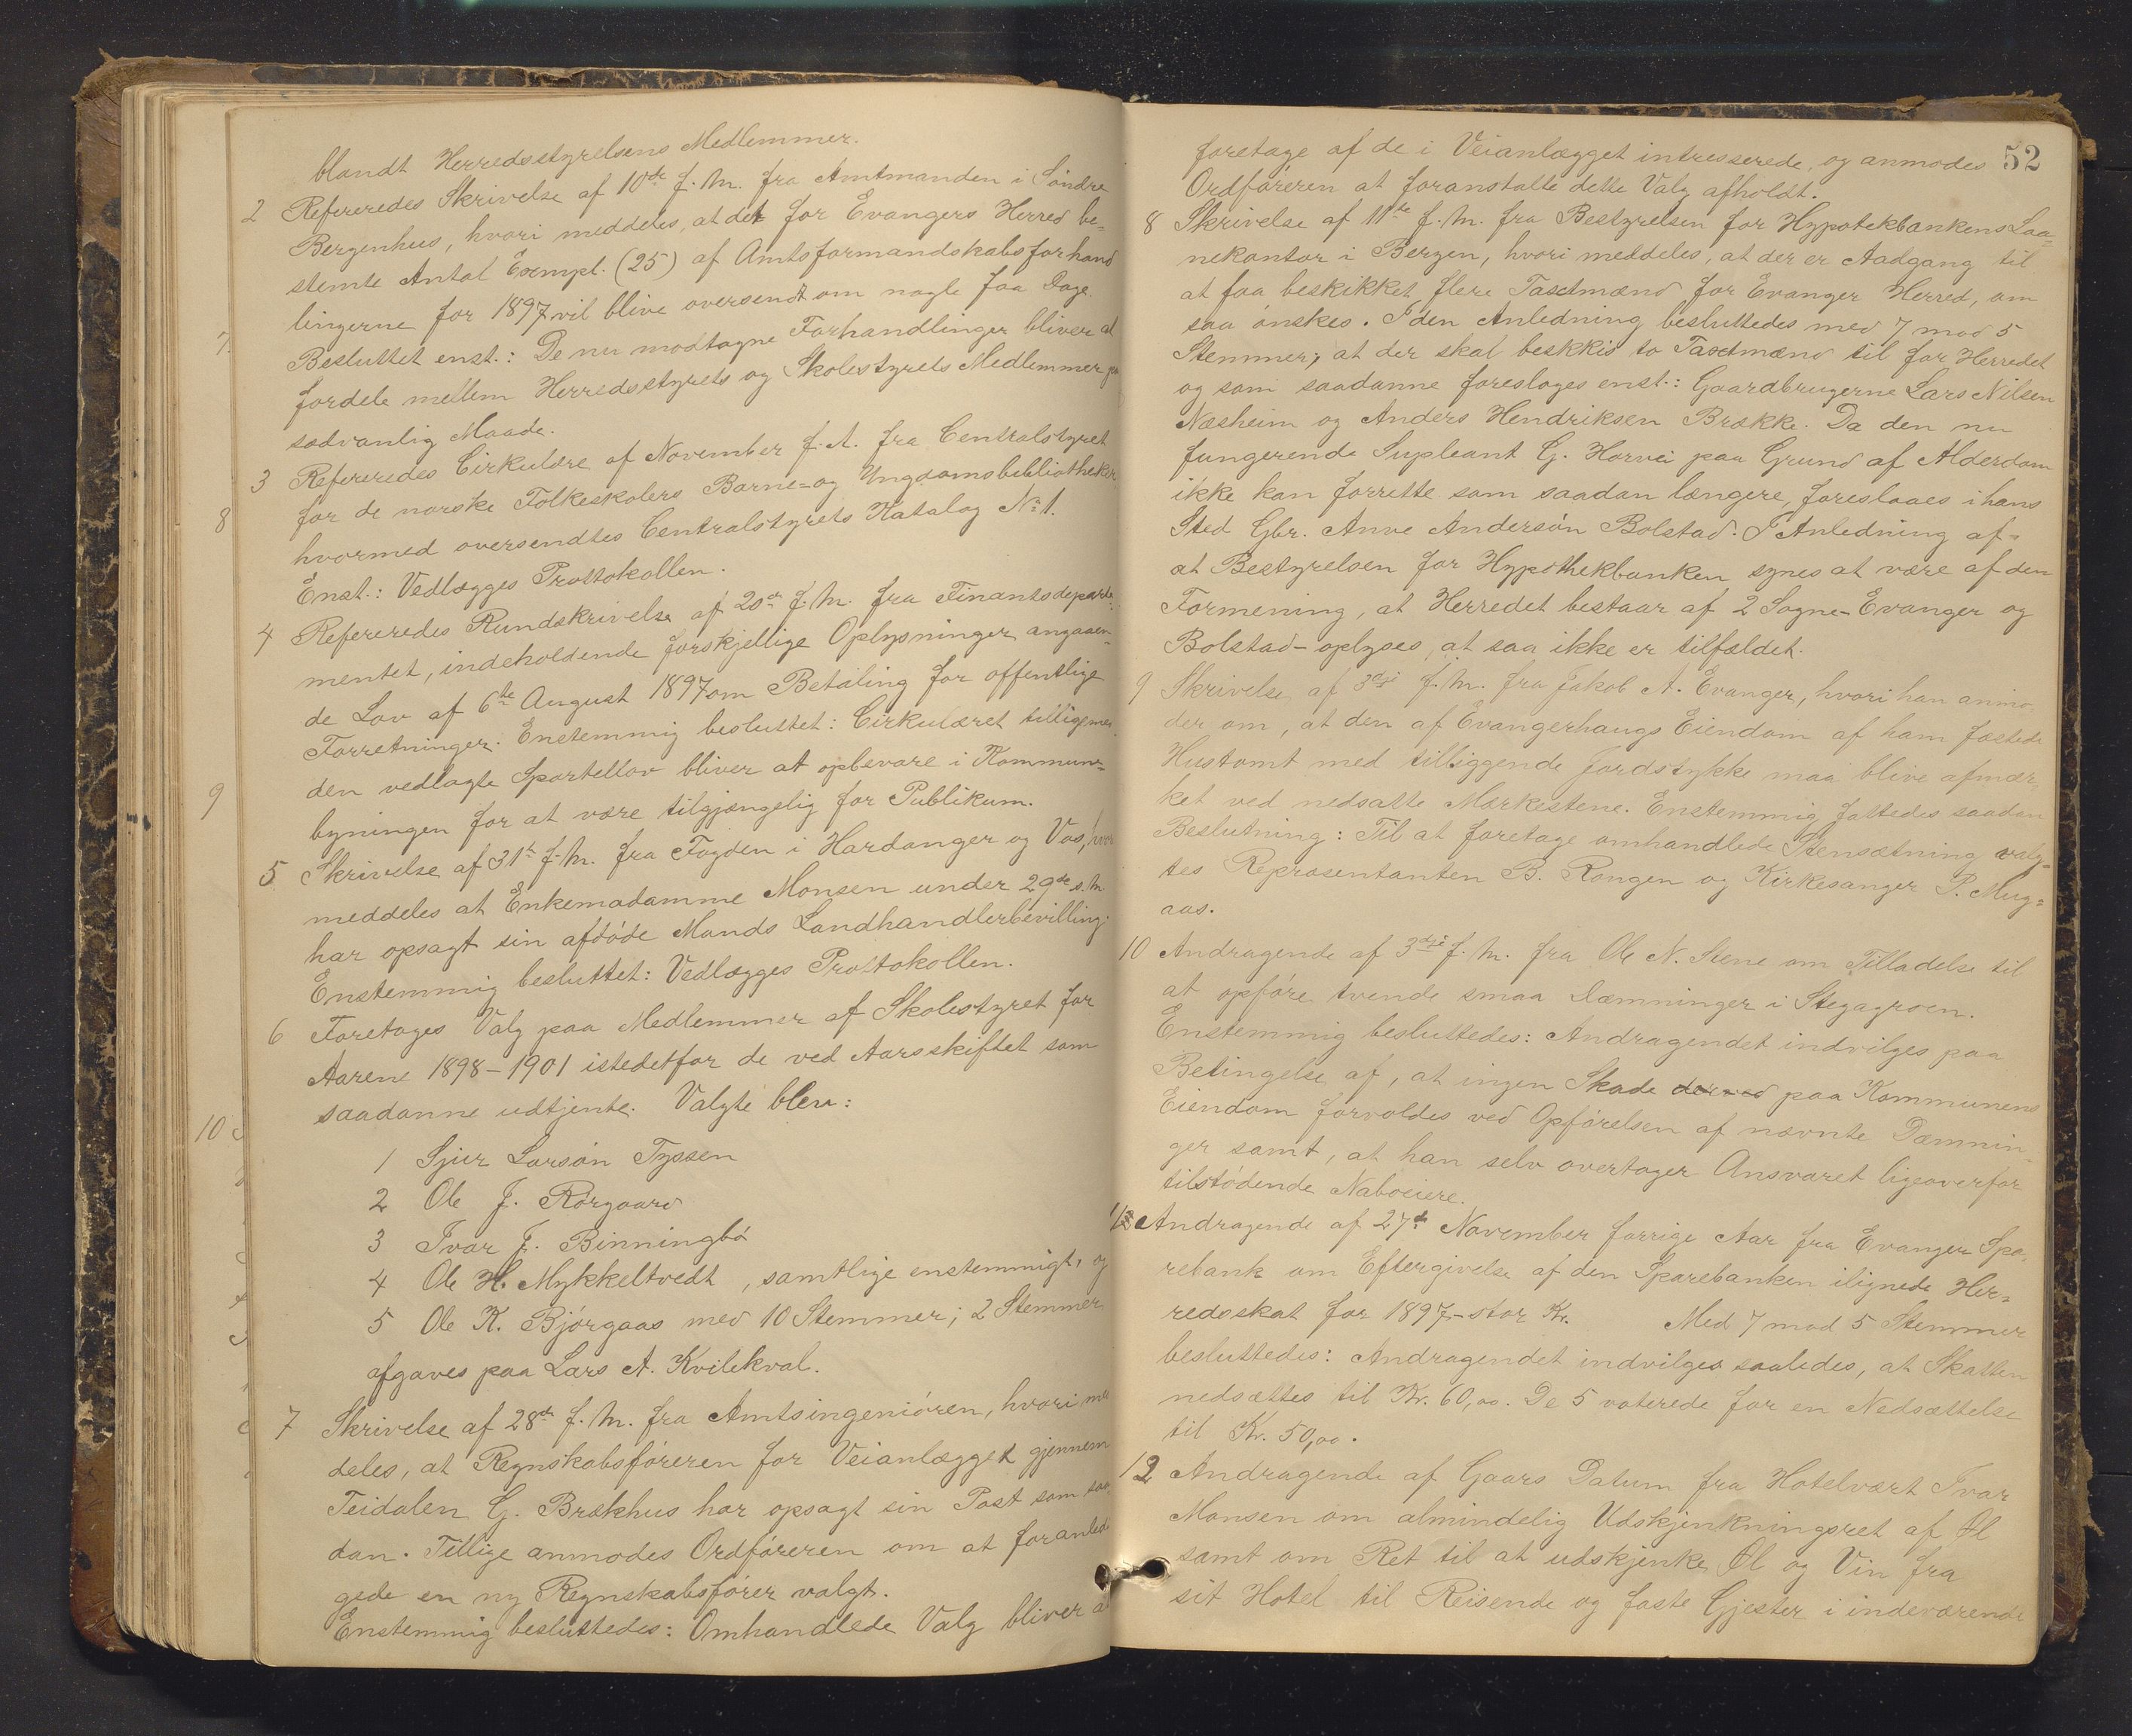 blandt Herredsstyrelsens Medlemmer.
2 Refereredes Skrivelse af 10de f. M. fra Amtmanden i Søndre
Bergenhus, hvori meddeles, at det for Evangers Herred be-
stemte Antal Exempl. (25) af Amtsformandskabsforhand
lingerne for 1897 vil blive oversendt om nogle faa Dage.
Besluttet enst.: De nu modtagne Forhandlinger bliver at
fordele mellem Herredsstyrets og Skolestyrets Medlemmer paa
sædvanlig Maade.
3 Refereredes Cirkulære af November f. A. fra Centralstyret
for de norske Folkeskolers Barne- og Ungdomsbibliotheker
hvormed oversendtes Centralstyrets Katalog No 1.
Enst.: Vedlægges Prottokollen.
4 Refereredes Rundskrivelse af 20de f. M. fra Finantsdeparte-
mentet, indeholdende forskjellige Oplysninger angaaen-
de Lov af 6te August 1897 om Betaling for offentlige
Forretninger. Enstemmig besluttet: Cirkulæret tilligemed
den vedlagte Sportellov bliver at opbevare i Kommune-
bygningen for at være tilgjængelig for Publikum.
5 Skrivelse af 31te f. M. fra Fogden i Hardanger og Vos, hvori
meddeles at Enkemadamme Monsen under 29de s. M
har opsagt sin afdøde Mands Landhandlerbevilling.
Enstemmig besluttet: Vedlægges Prottokollen.
6 Foretages Valg paa Medlemmer af Skolestyret for
Aarene 1898-1901 istedetfor de ved Aarsskiftet som
saadanne udtjente. Valgte blev:
1 Sjur Larsøn Tyssen
2 Ole J. Rørgaard
3 Ivar J. Binningbø
4 Ole H. Mykkeltvedt, samtlige enstemmigt, og
5 Ole K. Bjørgaas med 10 Stemmer; 2 Stemmer
afgaves paa Lars A. Kvilekval.
7 Skrivelse af 28de f. M. fra Amtsingeniøren, hvori med
deles, at Regnskabsføreren for Veianlægget gjennem
Teidalen G. Brækhus har opsagt sin Post som saa
dan. Tillige anmodes Ordføreren om at foranledi
gede en ny Regnskabsfører valgt.
Enstemmig besluttedes: Omhandlede Valg bliver at
7.
8
9
10
52
foretage af de i Veianlægget intresserede, og anmodes
Ordføreren at foranstalte dette Valg afholdt.
8 Skrivelse af 11te f. M. fra Bestyrelsen for Hypotekbankens Laa-
nekontor i Bergen, hvori meddeles, at der er Aadgang til
at faa beskikket flere Taxtmænd for Evanger Herred, om
saa ønskes. I den Anledning besluttedes med 7 mod 5
Stemmer, at der skal beskkis to Taxtmænd til for Herredet
og som saadanne foresloges enst.: Gaardbrugerne Lars Nilsen
Næsheim og Anders Hendriksen Brække. Da den nu
fungerende Supleant G. Horvei paa Grund af Alderdom
ikke kan forrette som saadan længere, foreslaaes i hans
Sted Gbr. Anve Andersøn Bolstad. I Anledning af-
at Bestyrelsen for Hypothekbanken synes at være af den
Formening, at Herredet bestaar af 2 Sogne-Evanger og
Bolstad- oplyses, at saa ikke er tilfældet.
9 Skrivelse af 3dje f. M. fra Jakob A. Evanger, hvori han anmo
der om, at den af Evangerhaugs Eiendom af ham fæstede
Hustomt med tilliggende Jordstykke maa blive afmær-
ket ved nedsatte Mærkestene. Enstemmig fattedes saadan
Beslutning: Til at foretage omhandlede Stensætning valg-
tes Repræsentanten B. Rongen og Kirkesanger P. Mug-
aas.
10 Andragende af 3dje f. M. fra Ole N. Stene om Tilladelse til
at opføre tvende smaa Dæmninger i Stegagroen.
Enstemmig besluttedes: Andragendet indvilges paa
Betingelse af, at ingen Skade derved paa Kommunens
Eiendom forvoldes ved Opførelsen af nævnte Dæmnin-
ger samt, at han selv overtager Ansvaret ligeoverfor
tilstødende Naboeiere.
11 Andragende af 27de November forrige Aar fra Evanger Spa-
rebank om Eftergivelse af den Sparebanken ilignede Her-
redsskat for 1897-stor Kr. Med 7 mod 5 Stemmer
besluttedes: Andragendet indvilges saaledes, at Skatten
nedsættes til Kr. 60,00. De 5 voterede for en Nedsættelse
til Kr. 50,00.
12 Andragende af Gaars Datum fra Hotelvært Ivar
Monsen om almindelig Udskjenkningsret af Øl
samt om Ret til at udskjenke Øl og Vin fra
sit Hotel til Reisende og faste Gjester i indeværende